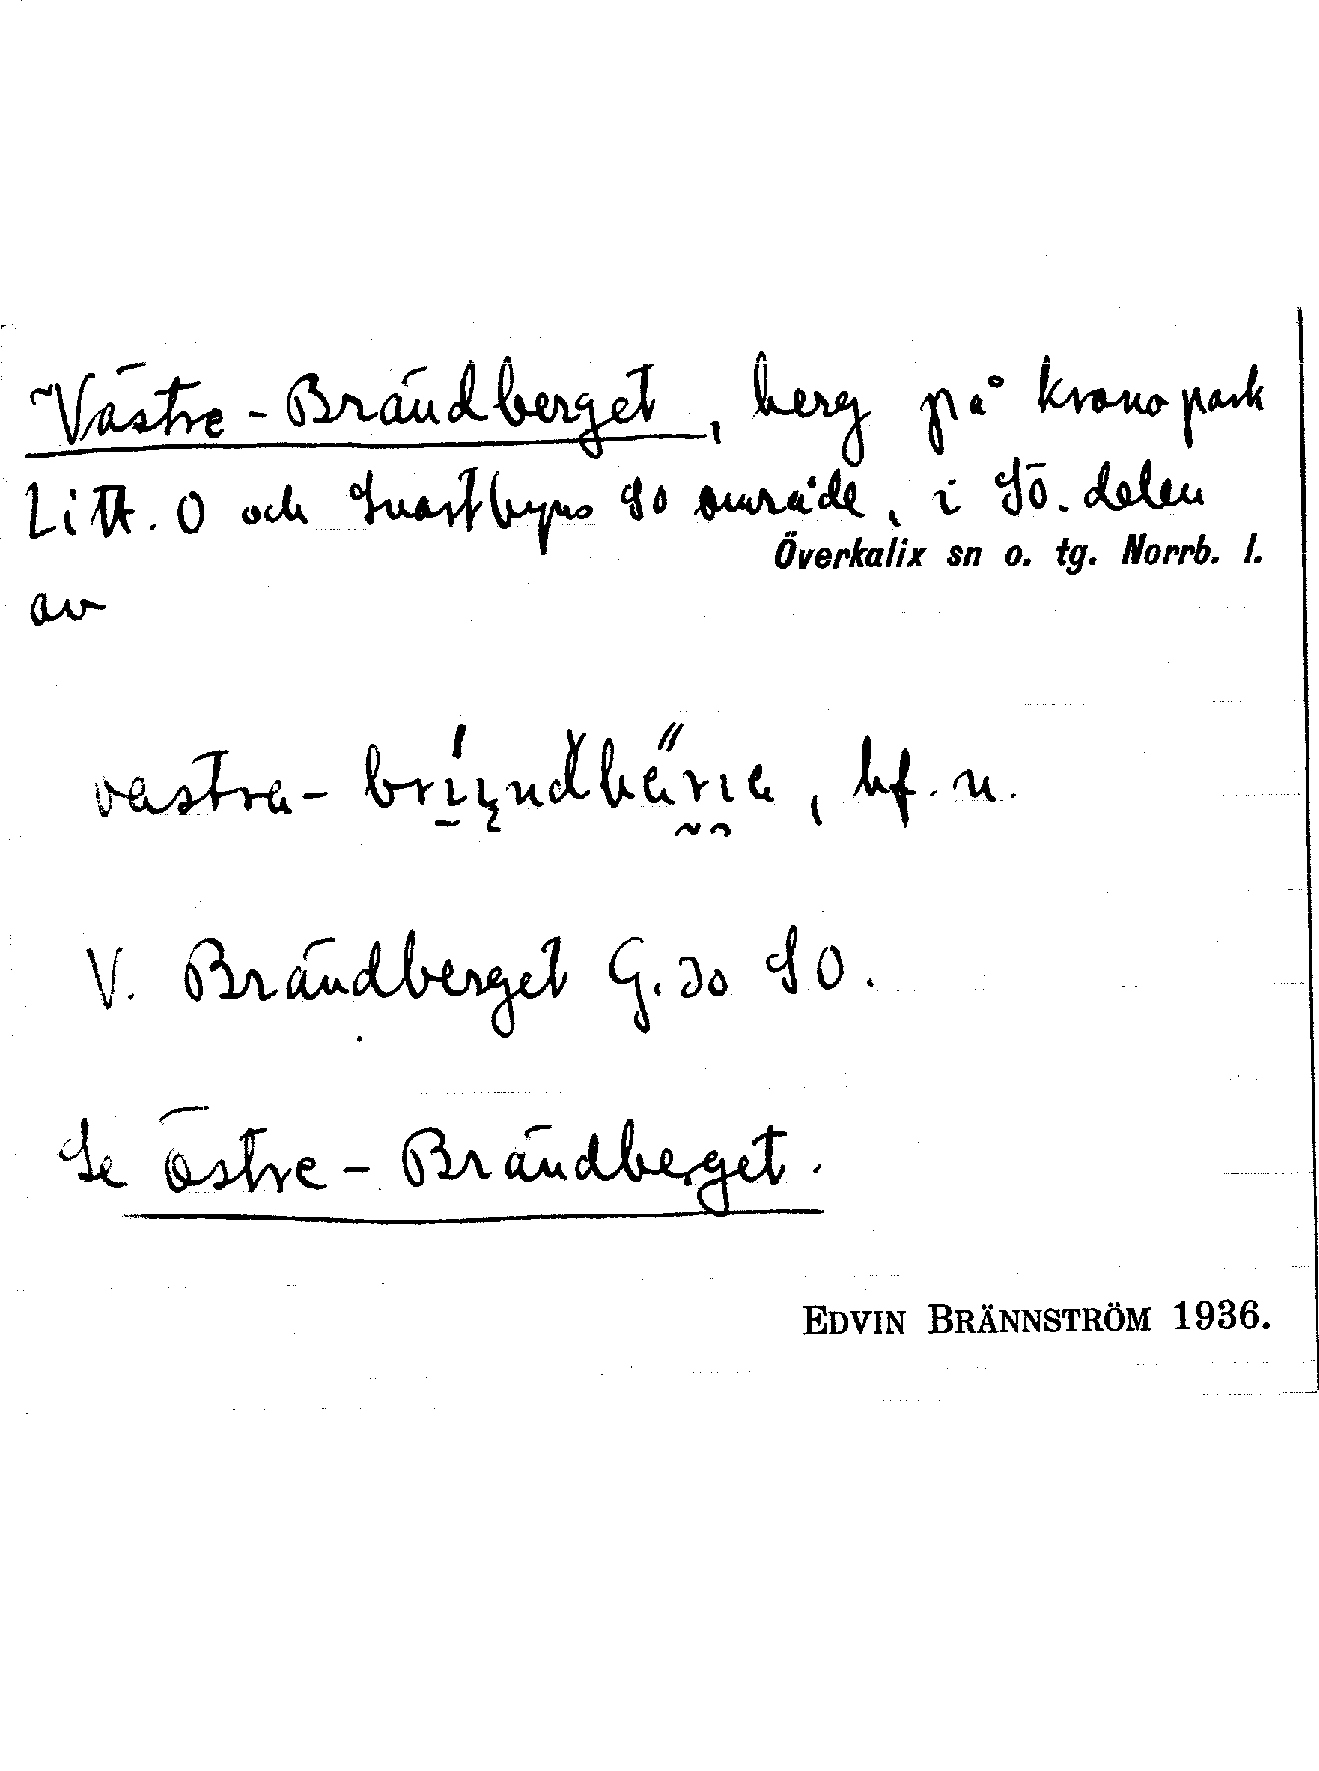 Västre-Brändberget, berg på kronopark
Litt. O och Svartbyns So område, i Sö. delen
Överkalix sn o. tg. Norrb. l.
av
vastra- , bf. n.
V. Brändberget G. So.
Se Östre-Brändberget.
EDVIN BRÄNNSTRÖM 1936.